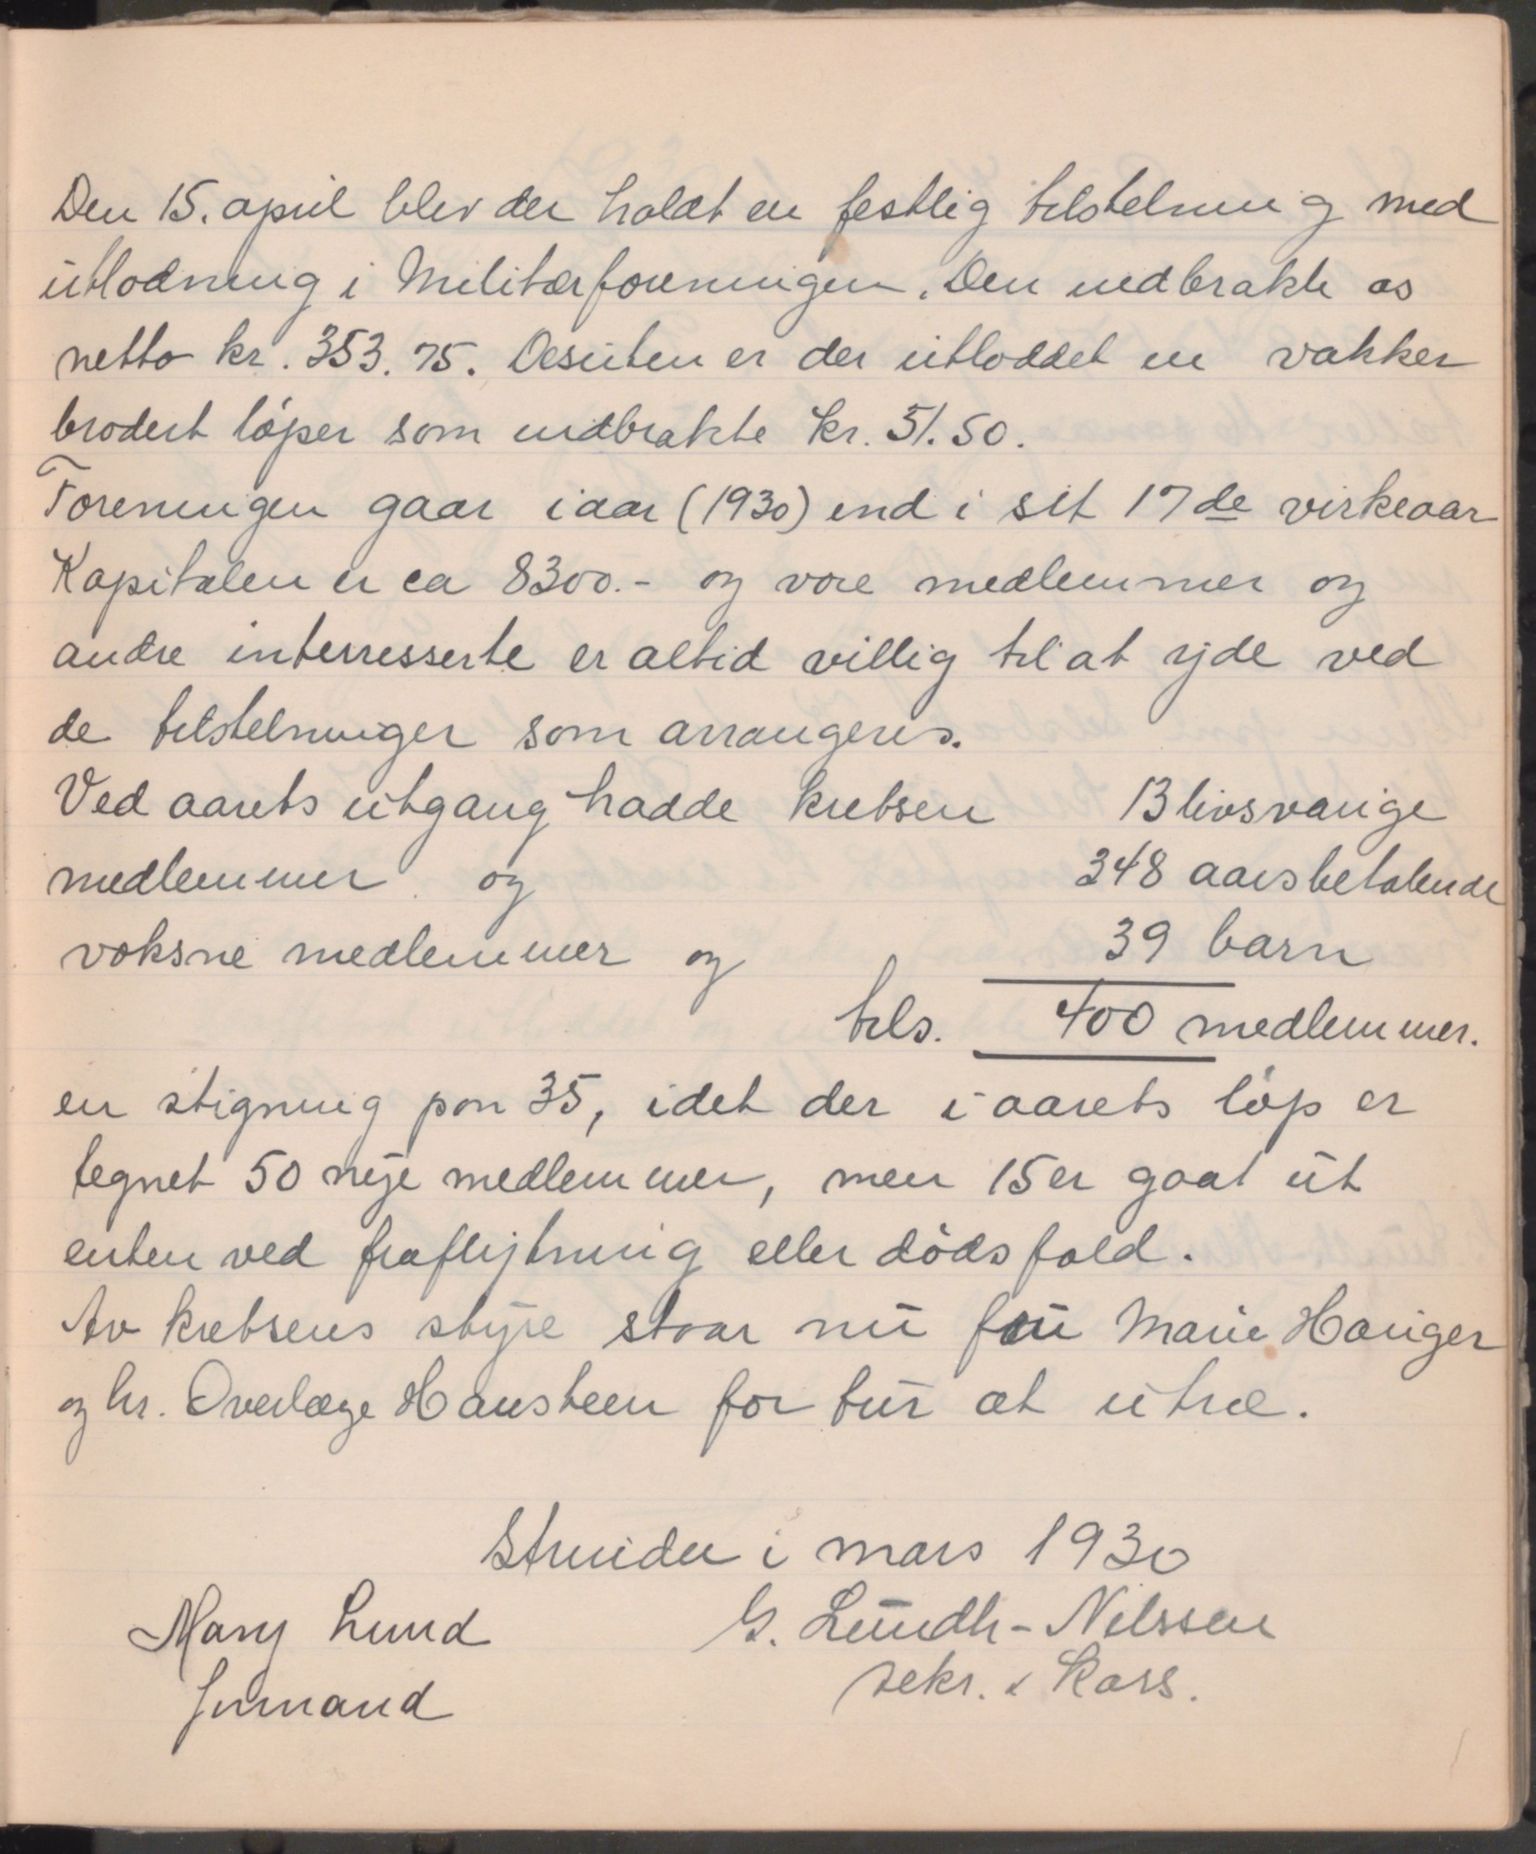 Den 15. april blev der holdt en festlig tilstelning med
utlodning i Militærforeningen. Den indbrakte os
netto kr. 353.75. Desuten er der utloddet en vakker
brodert løper som indbrakte kr. 51.50.
Foreningen gaar iaar (1930) ind i sit 17de virkeaar
Kapitalen er ca 8300.- og vore medlemmer og
andre interresserte er altid villig til at yde ved
de tilstelninger som arrangeres.
Ved aarets utgang hadde kretsen 13 livsvarige
medlemmer og 348 aarsbetalende
voksne medlemmer og 39 barn
tils. 400 medlemmer.
en stigning paa 35, idet der i aarets løp er
tegnet 50 nye medlemmer, men 15 er gaat ut
enten ved fraflytning eller dødsfald.
Av kretsens styre staar nu fru Marie Hauger
og hr. Overlæge Hansteen for tur at utræ.
Strinden i mars 1930
Mary Lund G. Lundh-Nilssen
Formand sekr. & Kass.